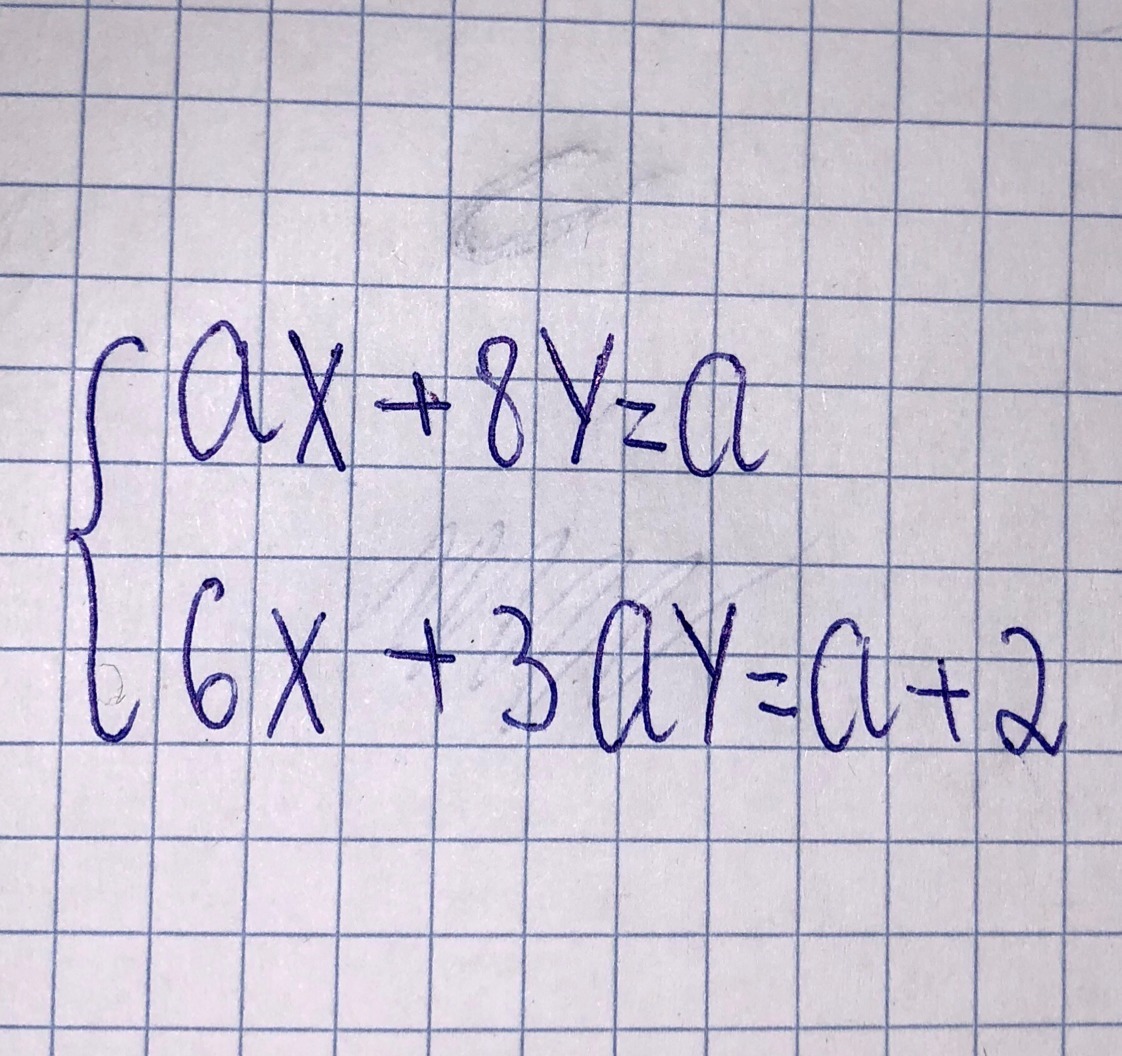 ax + 8y = a
6x + 3ay = a + 2